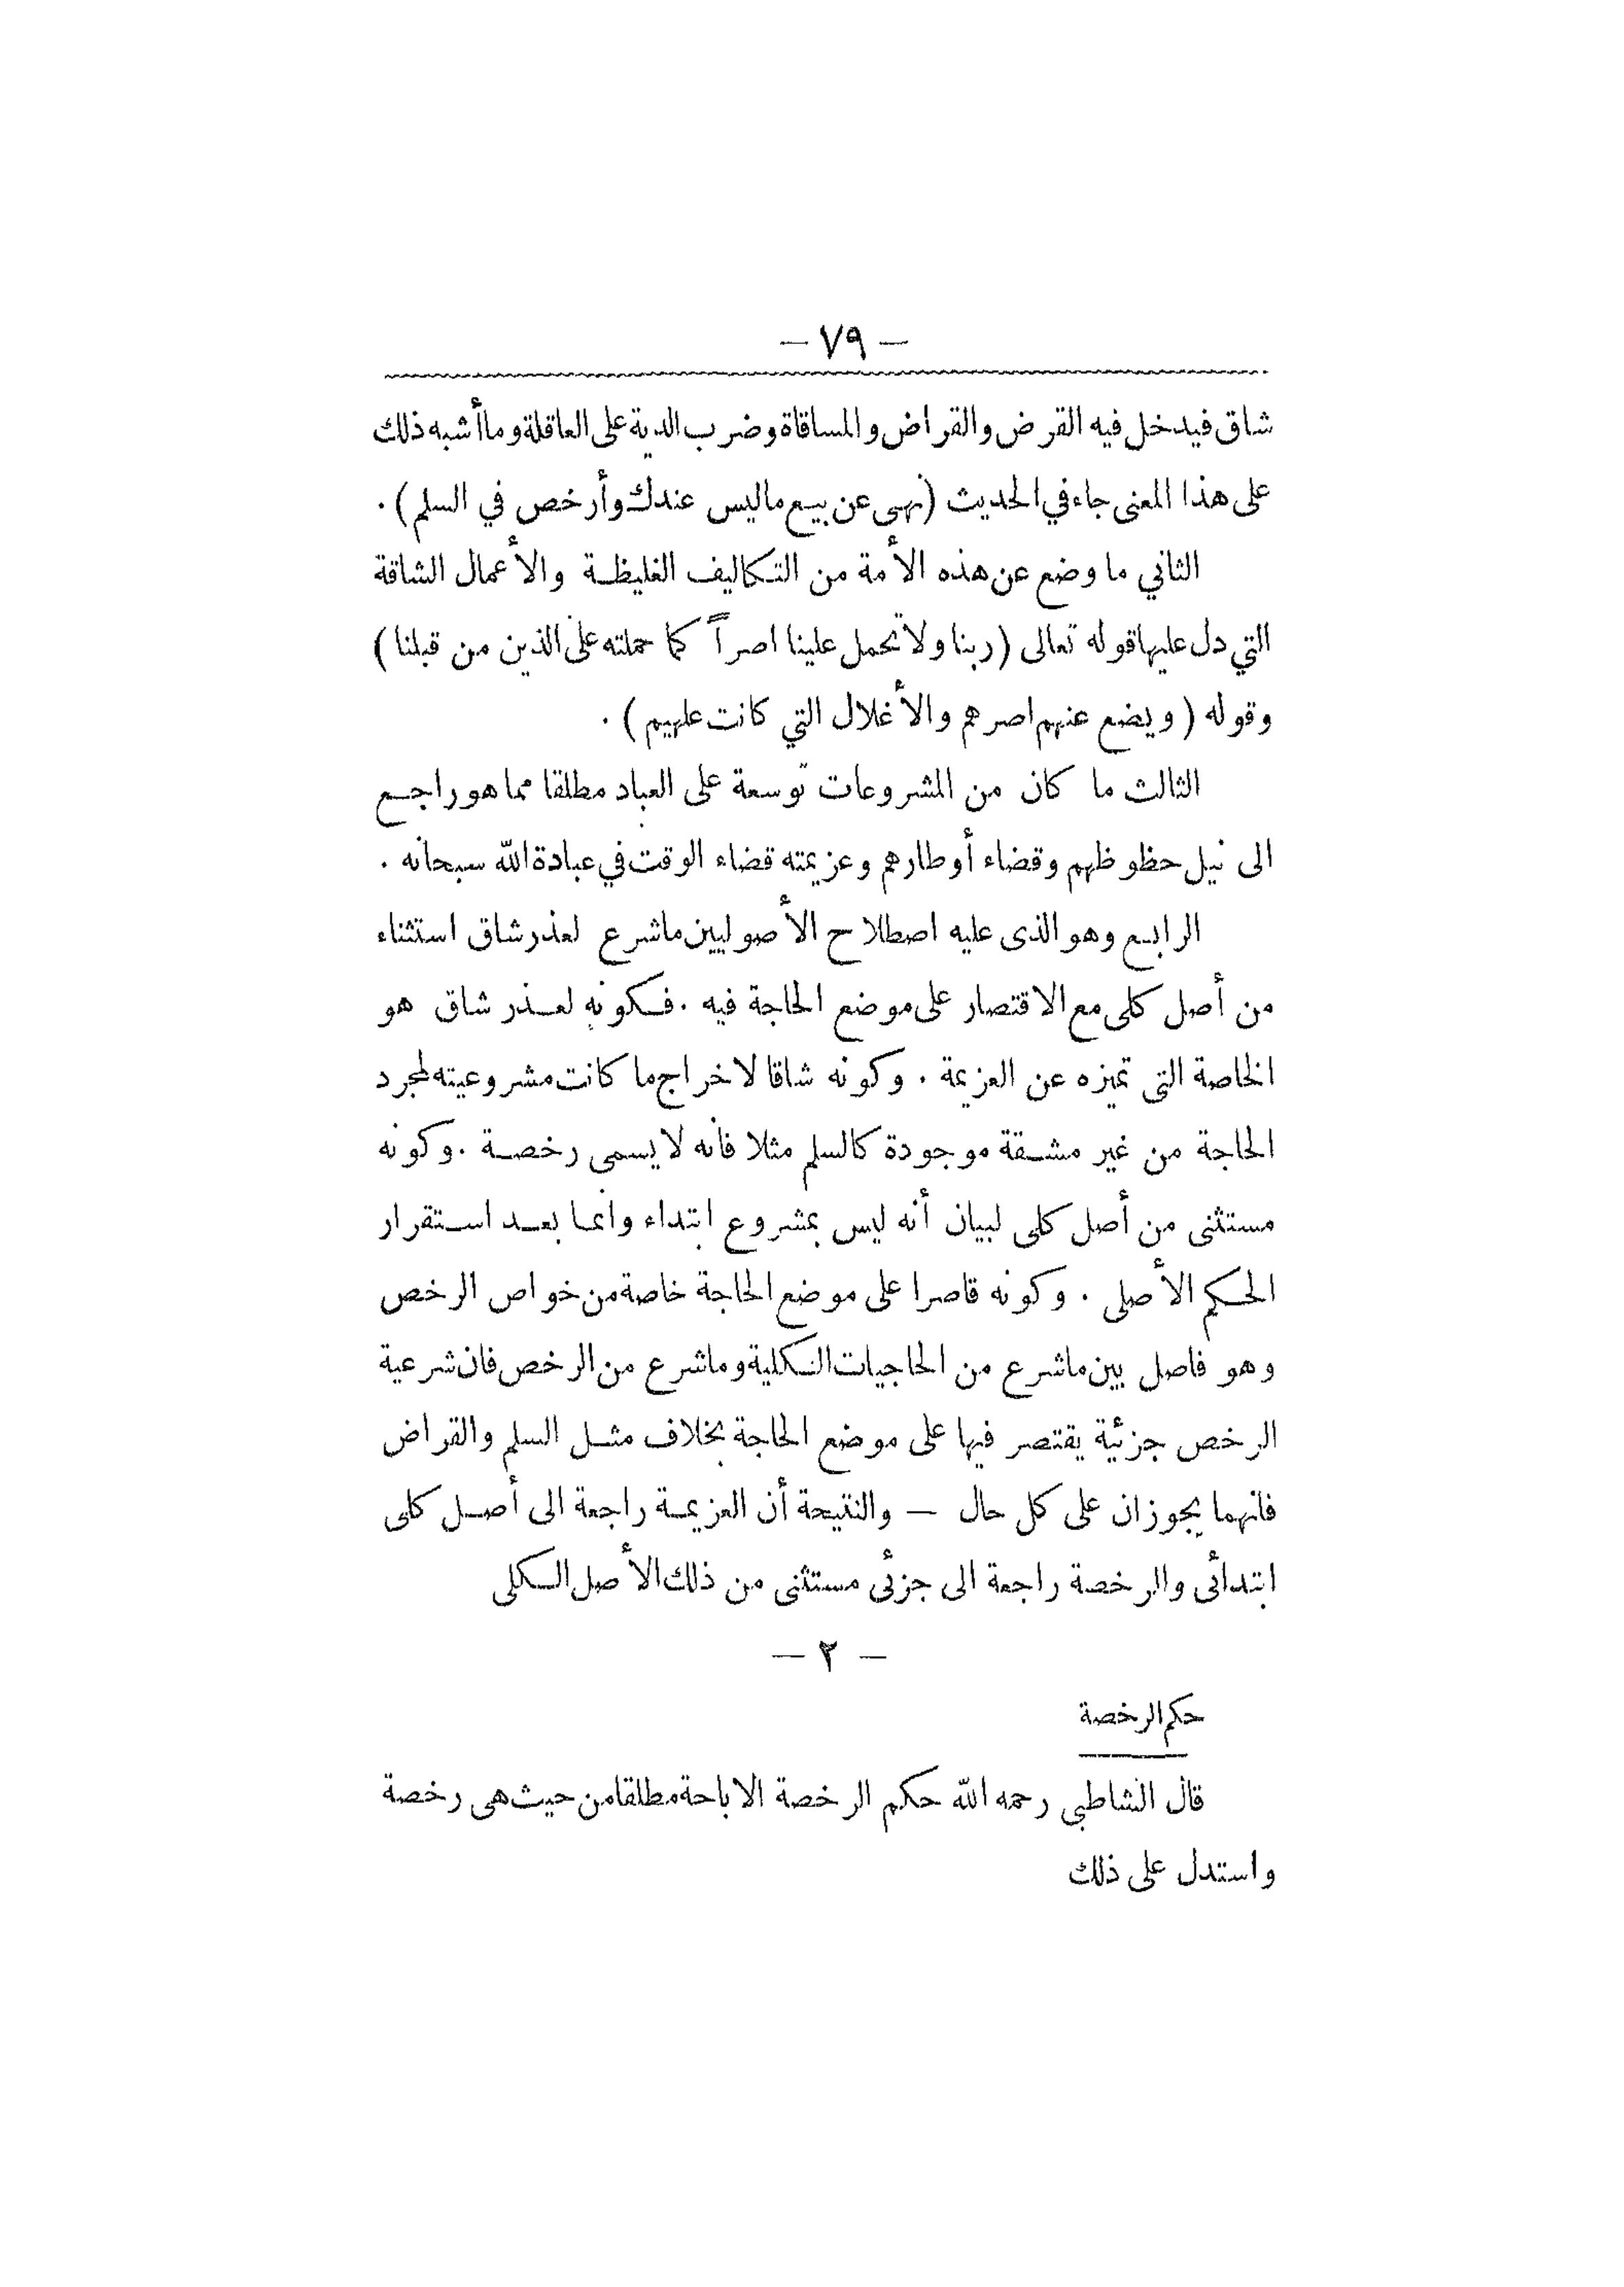 — ٧٩ —
شاق فيدخل فيه القرض والقراض والمساقاة وضرب الدية على العاقلة وما أشبه ذلك
على هذا المعنى جاء في الحديث (نهى عن بيع ما ليس عندك وأرخص في السلم) .
الثاني ما وضع عن هذه الأمة من التكاليف الغليظة والأعمال الشاقة
التي دل عليها قوله تعالى (ربنا ولا تحمل علينا اصراً كما حملته على الذين من قبلنا)
وقوله (ويضع عنهم اصرهم والأغلال التي كانت عليهم) .
الثالث ما كان من المشروعات توسعة على العباد مطلقا مما هو راجع
الى نيل حظوظهم وقضاء أوطارهم وعزيمته قضاء الوقت في عبادة الله سبحانه .
الرابع وهو الذى عليه اصطلاح الأصوليين ما شرع لعذر شاق استثناء
من أصل كلى مع الاقتصار على موضع الحاجة فيه . فكونه لعذر شاق هو
الخاصة التى تميزه عن العزيمة . وكونه شاقا لاخراج ما كانت مشروعيته لمجرد
الحاجة من غير مشقة موجودة كالسلم مثلا فانه لا يسمى رخصة . وكونه
مستثنى من أصل كلى لبيان أنه ليس بمشروع ابتداء وانما بعد استقرار
الحكم الأصلى . وكونه قاصرا على موضع الحاجة خاصة من خواص الرخص
وهو فاصل بين ما شرع من الحاجيات الكلية وما شرع من الرخص فان شرعية
الرخص جزئية يقتصر فيها على موضع الحاجة بخلاف مثل السلم والقراض
فانهما يجوزان على كل حال — والنتيجة أن العزيمة راجعة الى أصل كلى
ابتدائى والرخصة راجعة الى جزئى مستثنى من ذلك الأصل الكلى
— ٢ —
حكم الرخصة
قال الشاطبى رحمه الله حكم الرخصة الاباحة مطلقا من حيث هى رخصة
واستدل على ذلك